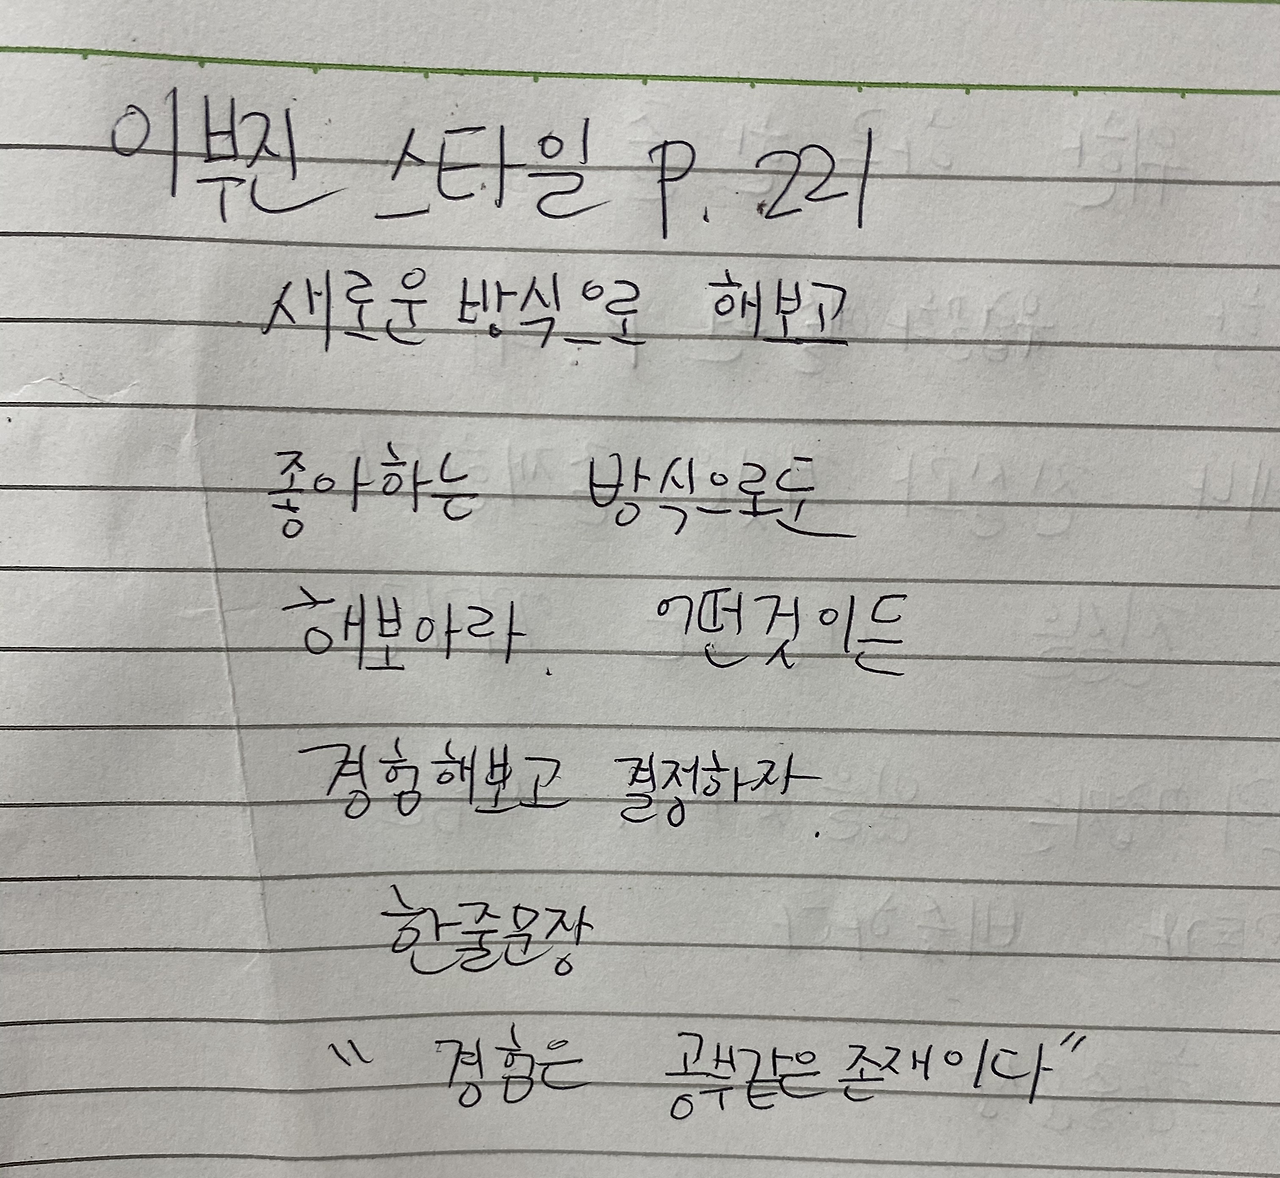 이부진 스타일 P. 221
새로운 방식으로 해보고
좋아하는 방식으로도
해보아라. 어떤것이든
경험해보고 결정하자.
한줄문장
" 경험은 공부같은 존재이다"